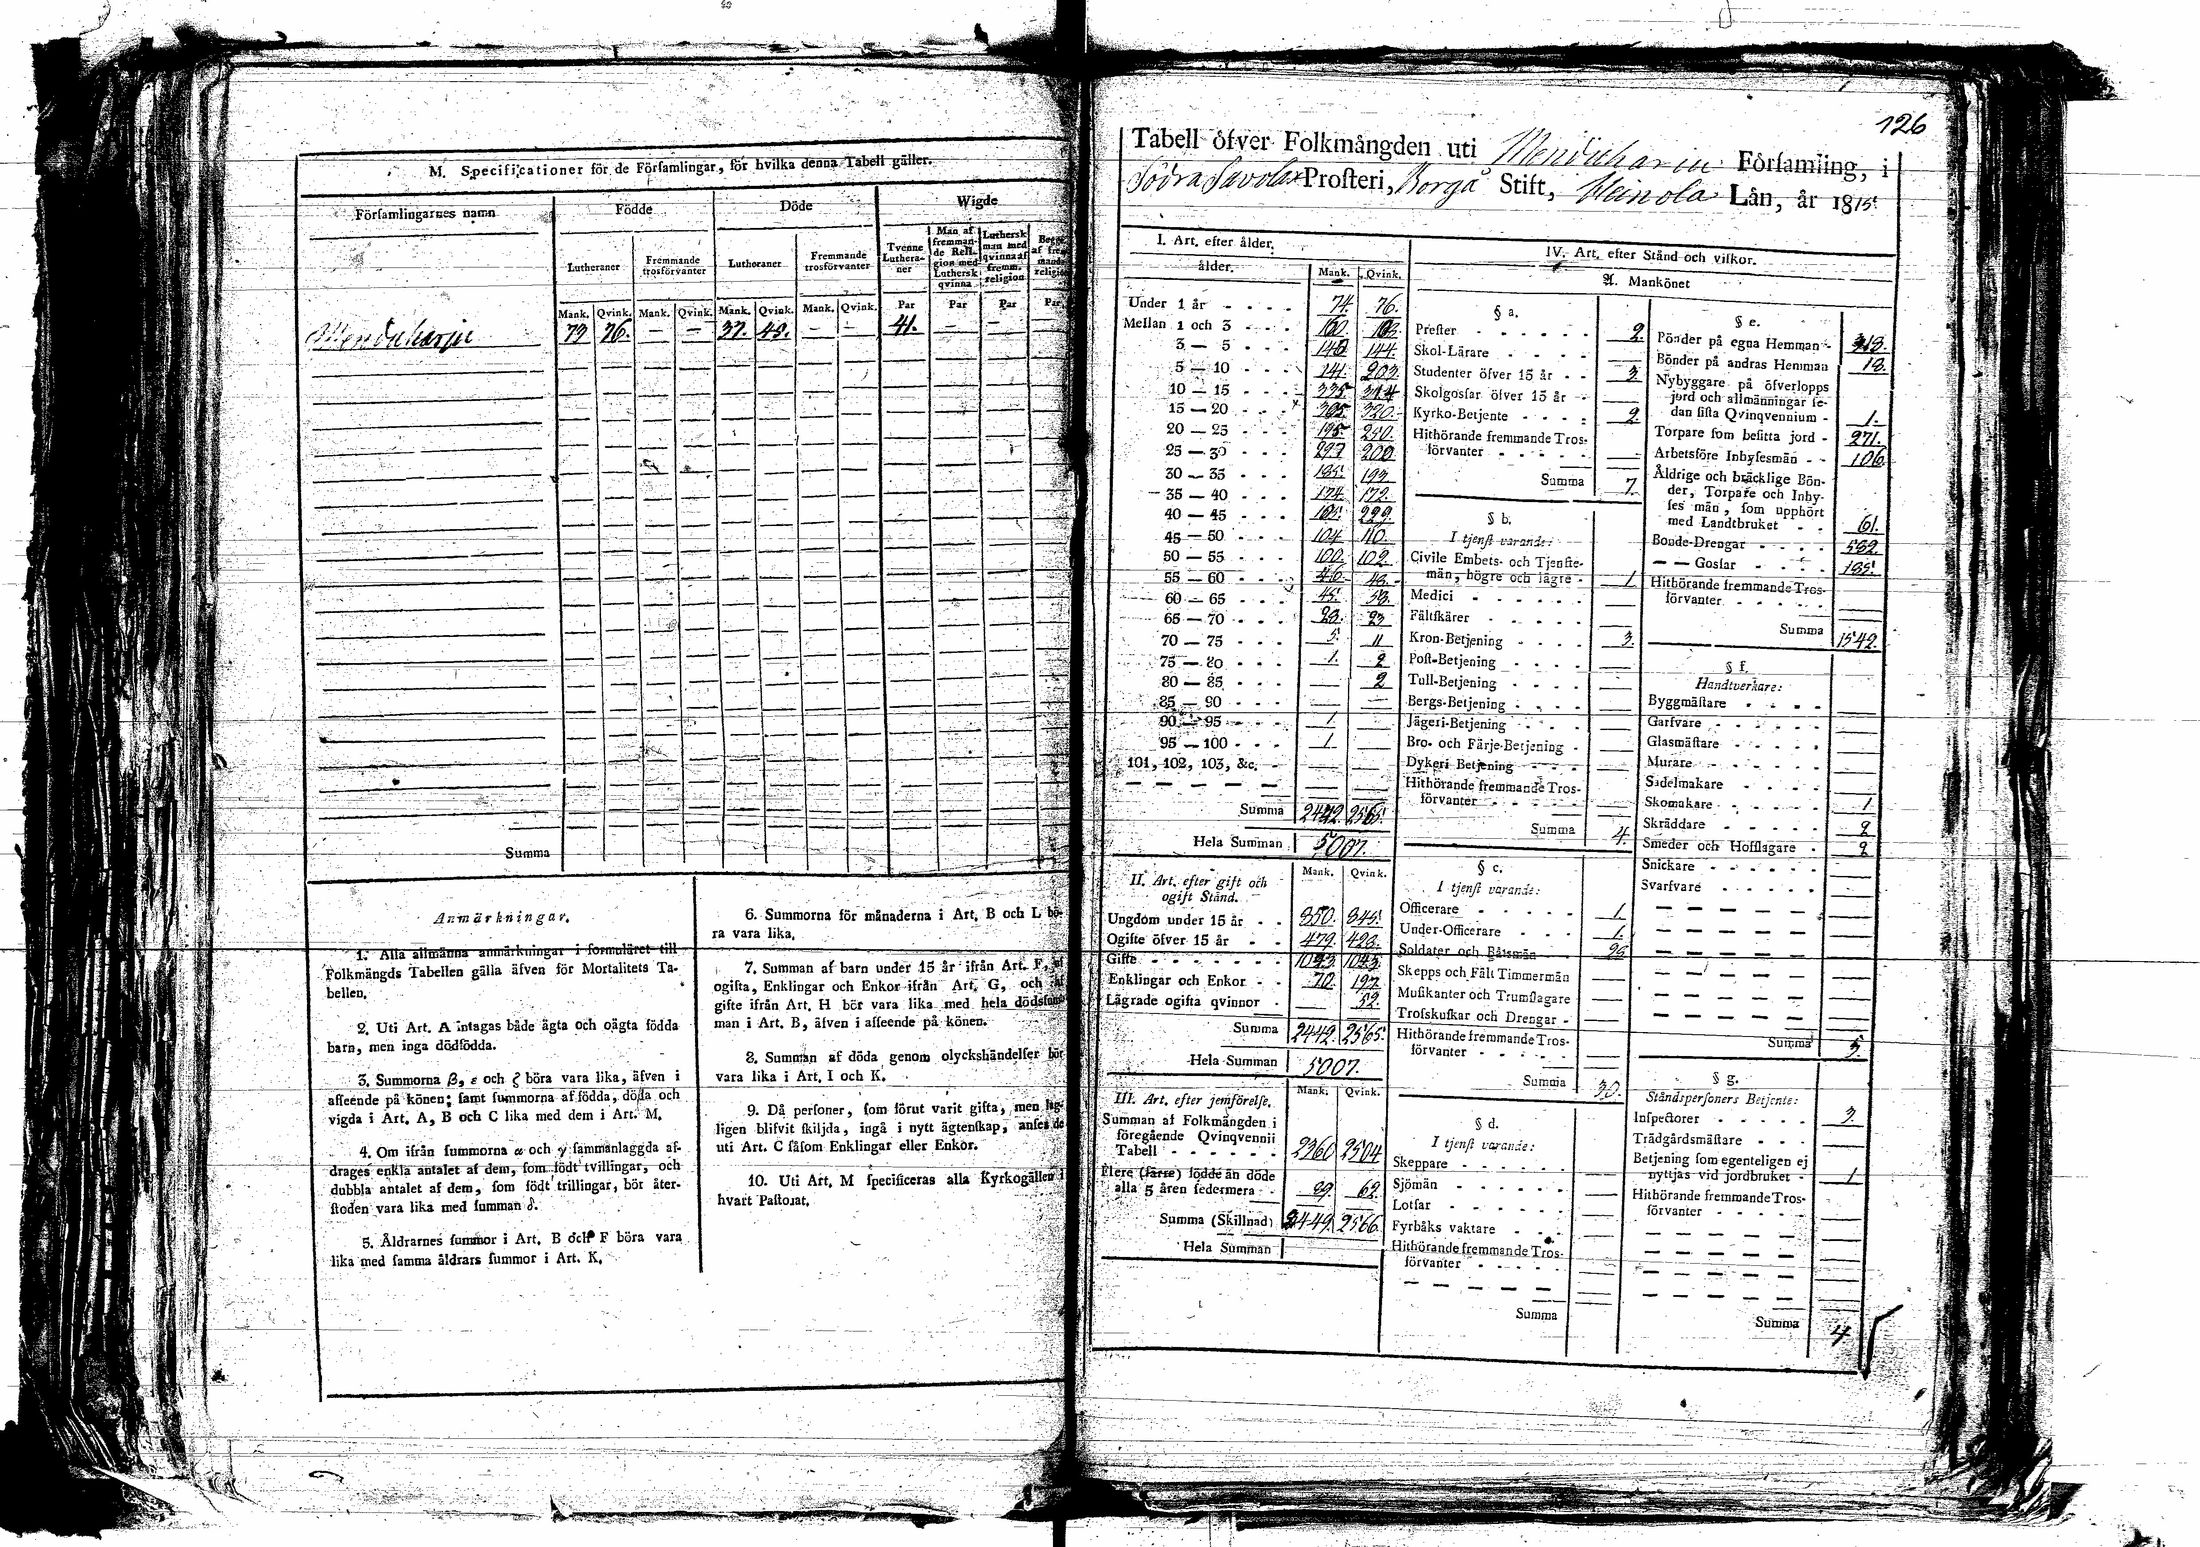 M. Specificationer för de Församlingar, för hvilka denna Tabell gäller.
Församlingarnes namn
Födde
Döde
Wigde
Lutheraner
Fremmande trosförvanter
Lutheraner
Fremmande trosförvanter
Tvenne Lutheraner
Man af fremmande Religion med Luthersk qvinna
Luthersk man med qvinna af fremm. religion
Mank. Qvink. Mank. Qvink. Mank. Qvink. Mank. Qvink. Par Par Par Par
79 76. — — 37. 48. — — 41. — —
Summa
Anmärkningar.
1. Alla allmänna anmärkningar i formuläret till
Folkmängds Tabellen gälla äfven för Mortalitets Ta-
bellen.
2. Uti Art. A intagas både ägta och oägta födda
barn, men inga dödfödda.
3. Summorna β, ε och ζ böra vara lika, äfven i
afseende på könen; samt summorna af födda, döda och
vigda i Art. A, B och C lika med dem i Art. M.
4. Om ifrån summorna α och γ sammanlaggda af-
drages enkla antalet af dem, som födt tvillingar, och
dubbla antalet af dem, som födt trillingar, bör åter-
stoden vara lika med summan δ.
5. Åldrarnes summor i Art. B och F böra vara
lika med samma åldrars summor i Art. K.
6. Summorna för månaderna i Art. B och L bö-
ra vara lika.
7. Summan af barn under 15 år ifrån Art. F, af
ogifta, Enklingar och Enkor ifrån Art. G, och af
gifte ifrån Art. H bör vara lika med hela dödssum-
man i Art. B, äfven i afseende på könen.
8. Summan af döda genom olyckshändelser bör
vara lika i Art. I och K.
9. Då personer, som förut varit gifta, men lag-
ligen blifvit skiljda, ingå i nytt ägtenskap, anses de
uti Art. C såsom Enklingar eller Enkor.
10. Uti Art. M specificeras alla Kyrkogällen i
hvart Pastorat.
126
Tabell öfver Folkmängden uti Mändüharju Församling, i
Södra Savolax Prosteri, Borgå Stift, Heinola Län, år 1815.
I. Art. efter ålder.
ålder. Mank. Qvink.
Under 1 år 74. 76.
Mellan 1 och 3
3 — 5 144.
5 — 10 141. 203.
10 — 15 335
15 — 20 320.
20 — 25 195. 250.
25 — 30 200
30 — 35 185. 193.
35 — 40 174. 172.
40 — 45 229.
45 — 50 104. 110.
50 — 55 100. 102.
55 — 60 46. 48.
60 — 65 45. 58.
65 — 70 23. 23
70 — 75 5. 11
75 — 80 1. 2
80 — 85 2
85 — 90 — —
90 — 95 1. —
95 — 100 1 —
101, 102, 103, &c. — —
Summa 2442. 2565.
Hela Summan 5007.
II. Art. efter gift och
ogift Stånd.
Mank. Qvink.
Ungdom under 15 år 850. 845.
Ogifte öfver 15 år 479. 423.
Gifte 1043. 1043.
Enklingar och Enkor 70. 197.
Lägrade ogifta qvinnor 52.
Summa 2442. 2565.
Hela Summan 5007.
III. Art. efter jemförelse.
Mank. Qvink.
Summan af Folkmängden i
föregående Qvinqvennii
Tabell 2360 2504
Flere (färre) födde än döde
alla 5 åren sedermera 89. 62.
Summa (Skillnad) 2449. 2566.
Hela Summan
IV. Art. efter Stånd och vilkor.
A. Mankönet
§ a.
Prester 2.
Skol-Lärare —
Studenter öfver 15 år 3.
Skolgossar öfver 15 år —
Kyrko-Betjente 2.
Hithörande fremmande Tros-
förvanter —
Summa 7.
§ b.
I tjenst varande:
Civile Embets- och Tjenste-
män, högre och lägre 1.
Medici —
Fältskärer —
Kron-Betjening 3.
Post-Betjening —
Tull-Betjening —
Bergs-Betjening —
Jägeri-Betjening —
Bro- och Färje-Betjening —
Dykeri Betjening —
Hithörande fremmande Tros-
förvanter —
Summa 4.
§ c.
I tjenst varande:
Officerare 1.
Under-Officerare 1.
Soldater och Båtsmän 28
Skepps och Fält Timmermän —
Musikanter och Trumslagare —
Trosskuskar och Drengar —
Hithörande fremmande Tros-
förvanter —
Summa 30.
§ d.
I tjenst varande:
Skeppare —
Sjömän —
Lotsar —
Fyrbåks vaktare —
Hithörande fremmande Tros-
förvanter —
Summa
§ e.
Bönder på egna Hemman 318.
Bönder på andras Hemman 18.
Nybyggare på öfverlopps
jord och allmänningar se-
dan sista Qvinqvennium 1.
Torpare som besitta jord 271.
Arbetsföre Inhysesmän 106
Åldrige och bräcklige Bön-
der, Torpare och Inhy-
ses män, som upphört
med Landtbruket 61.
Bonde-Drengar 582.
— — Gossar 185.
Hithörande fremmande Tros-
förvanter —
Summa 1542.
§ f.
Handtverkare:
Byggmästare —
Garfvare —
Glasmästare —
Murare —
Sadelmakare —
Skomakare 1
Skräddare 2
Smeder och Hofslagare 2
Snickare —
Svarfvare —
Summa 5.
§ g.
Ståndspersoners Betjente:
Inspectorer 3.
Trädgårdsmästare —
Betjening som egenteligen ej
nyttjas vid jordbruket 1
Hithörande fremmande Tros-
förvanter —
Summa 4